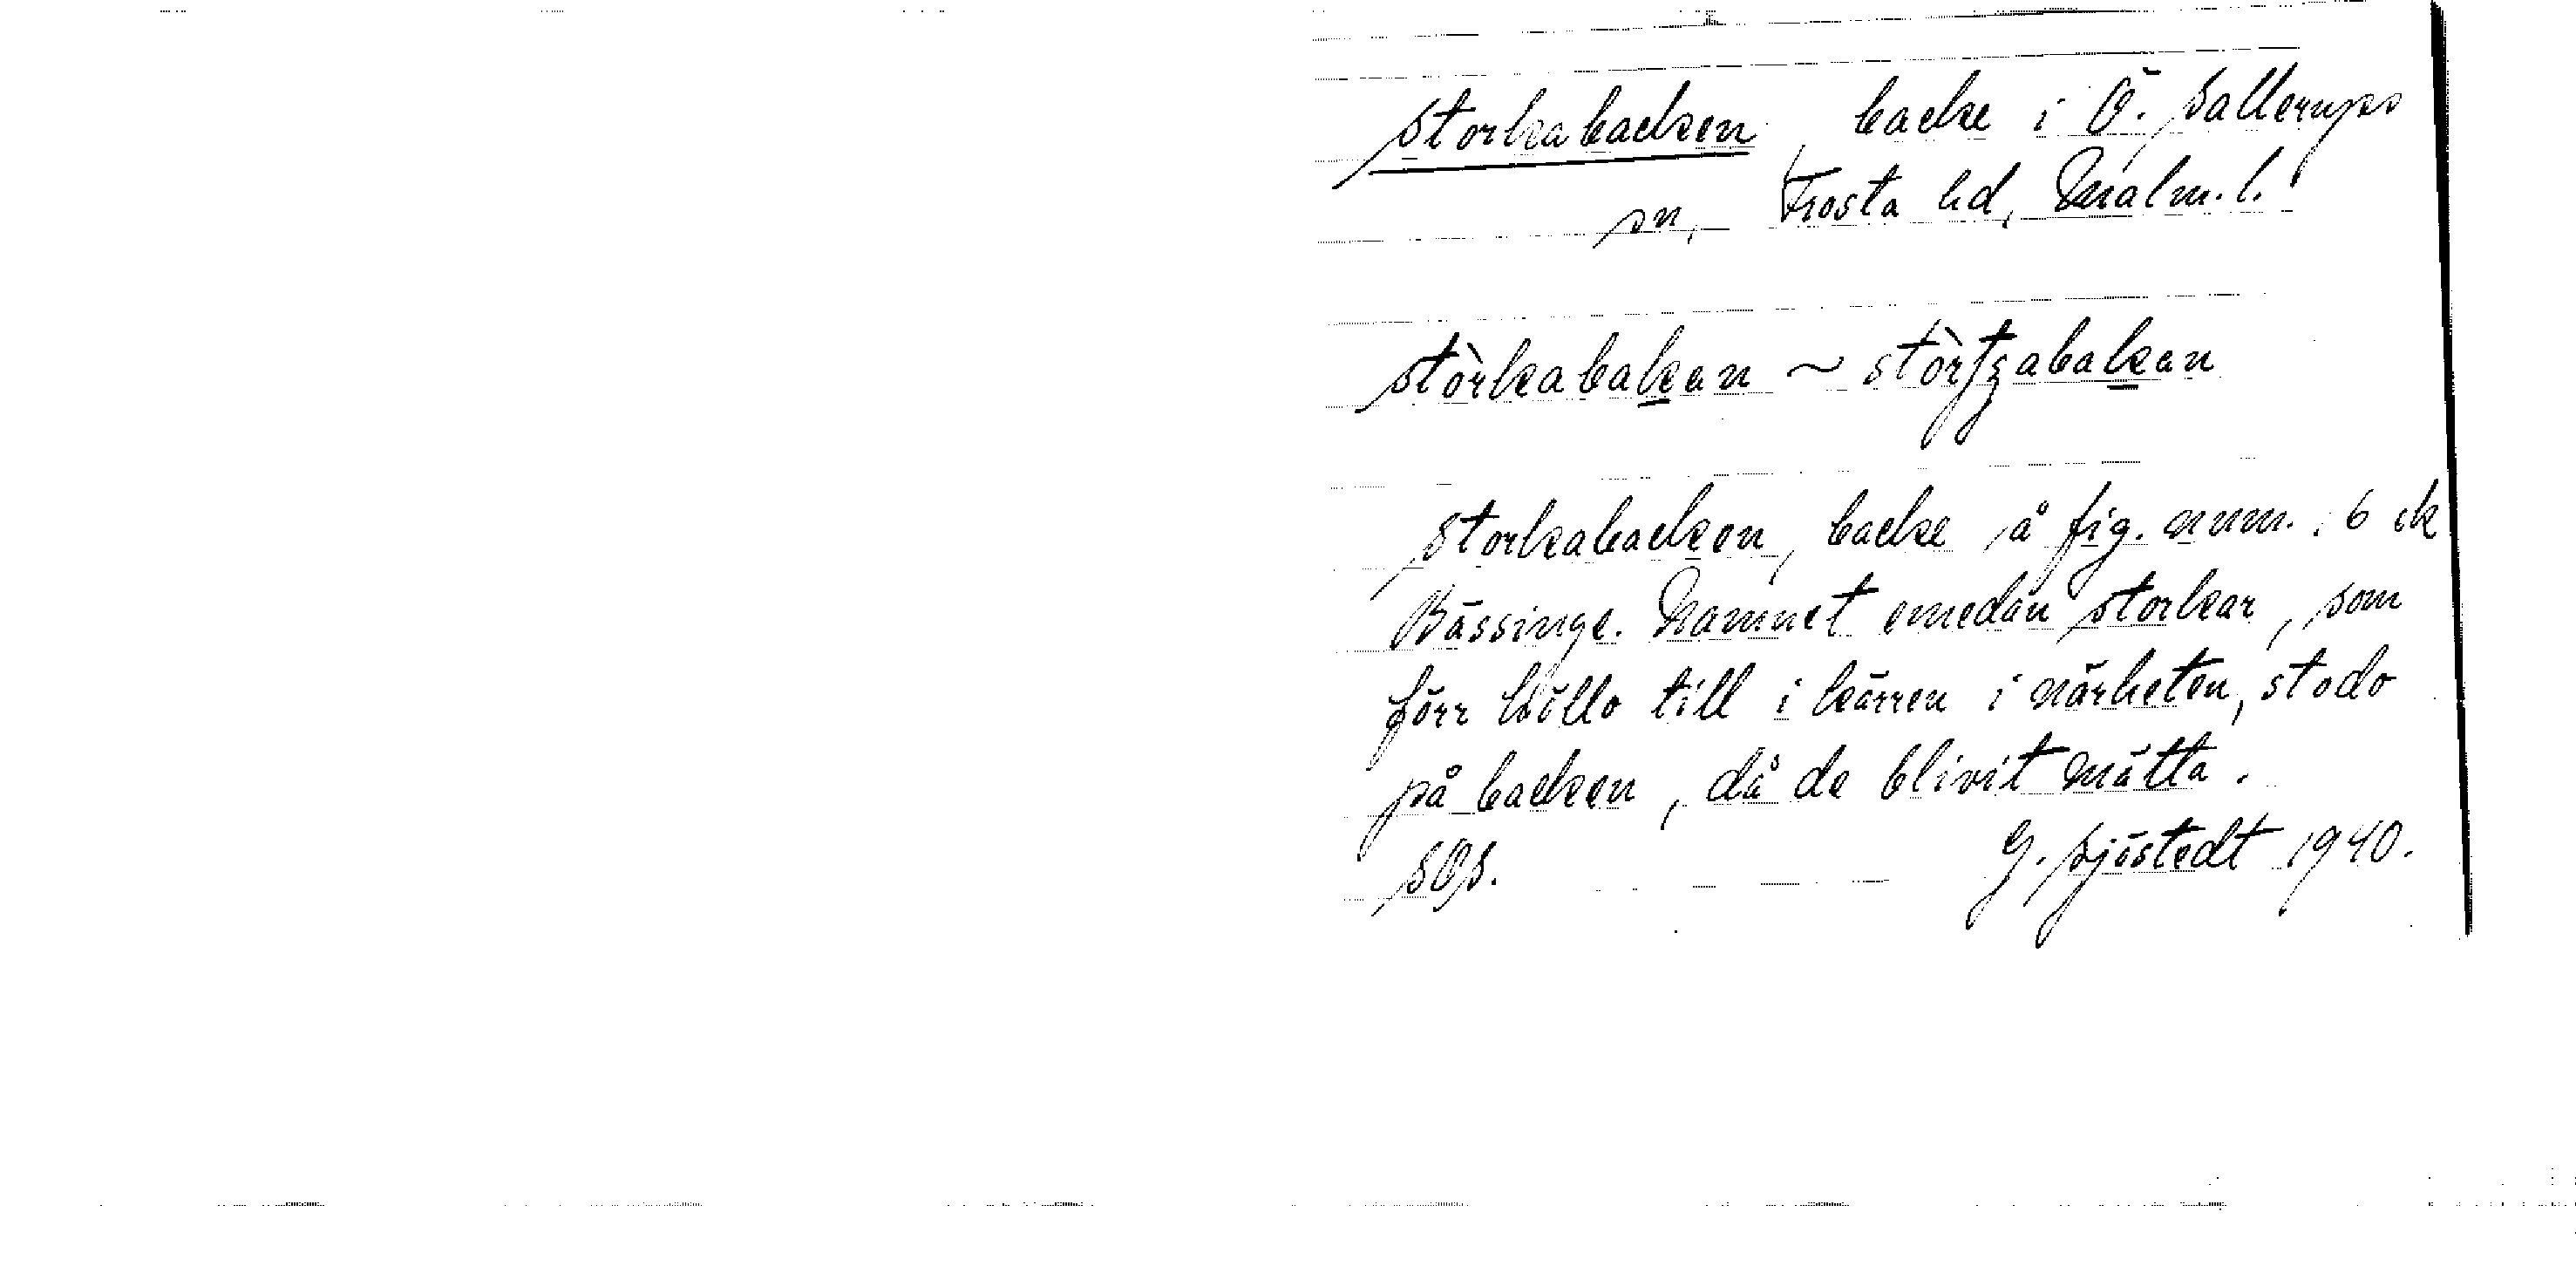 Storkabacken backe i Ö. Sallerups
sn, Frosta hd, Malm. l.
stòrkabakan ~ stòrtʒabakan
Storkabacken, backe å fig. num. 6 ek
Bässinge. Namnet emedan storkar, som
förr höllo till i kärren i närheten, stodo
på backen, då de blivit mätta.
SOS. G. Sjöstedt 1940.